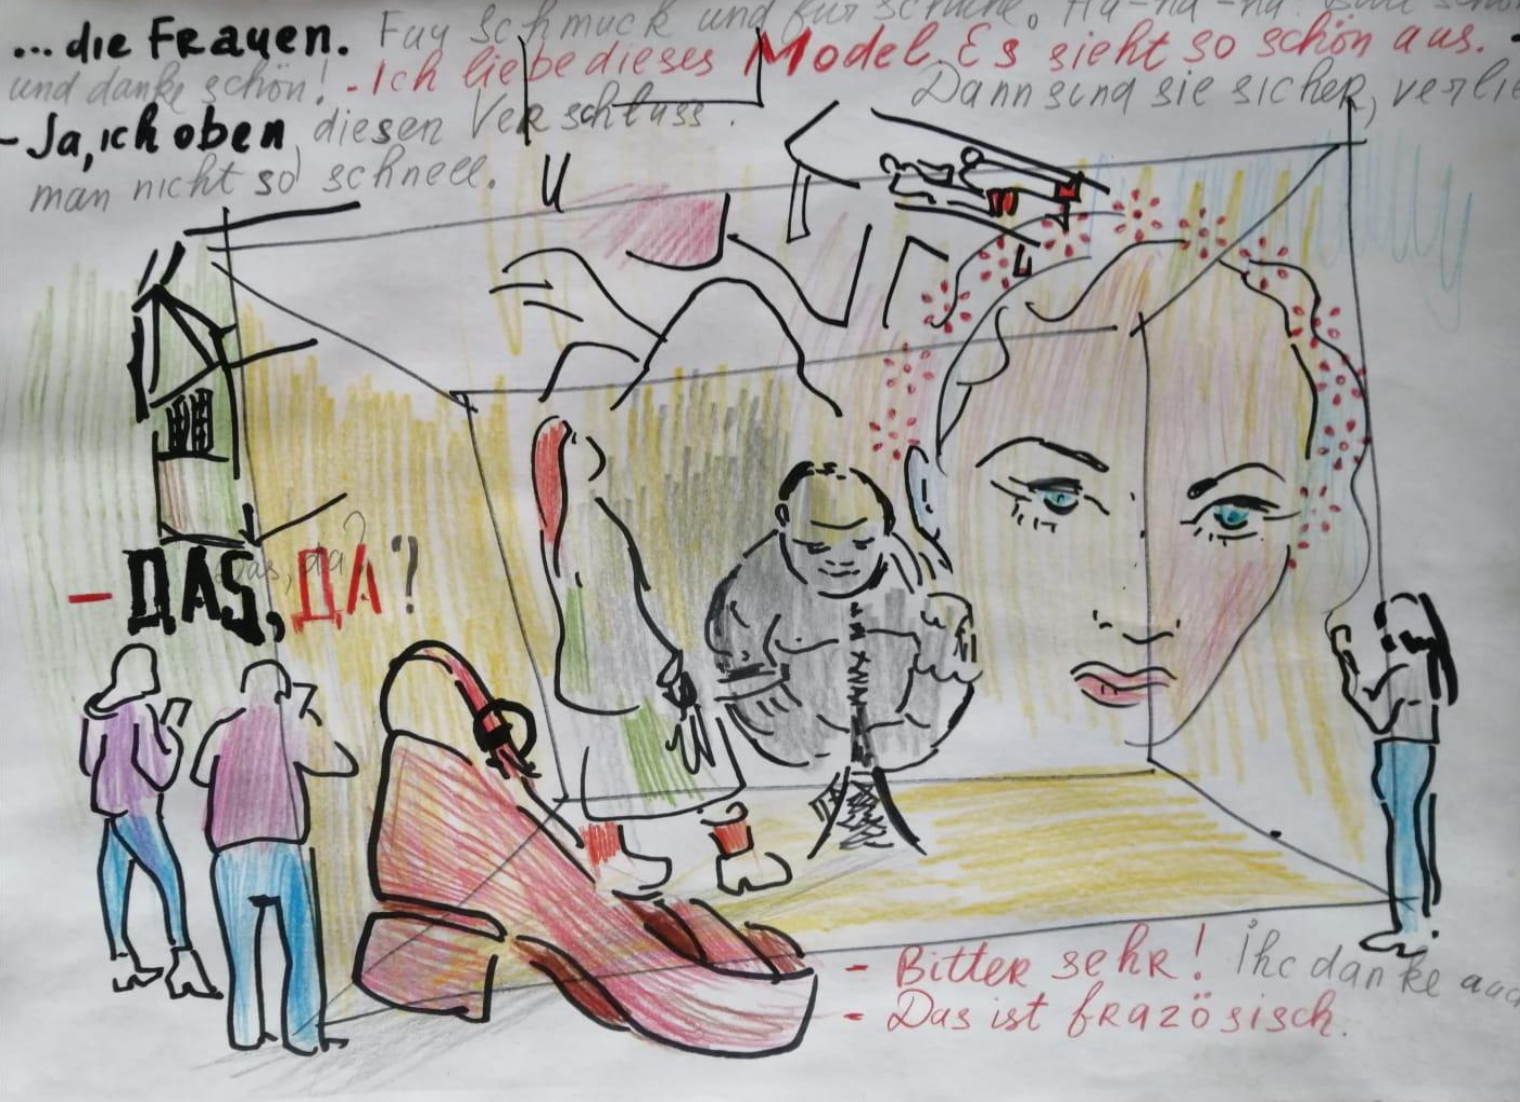 ... die Frauen. Fuy Schmuck und für Schuhe. Ha-ha-ha!
und danke schön! - Ich liebe dieses Model. Es sieht so schön aus. -
- Ja, ich oben diesen Verschluss. Dann sind sie sicher, verlie
man nicht so schnell.
- DAS, ДА?
Das, da?
- Bitter sehr! Ihc danke auc
- Das ist frazösisch.